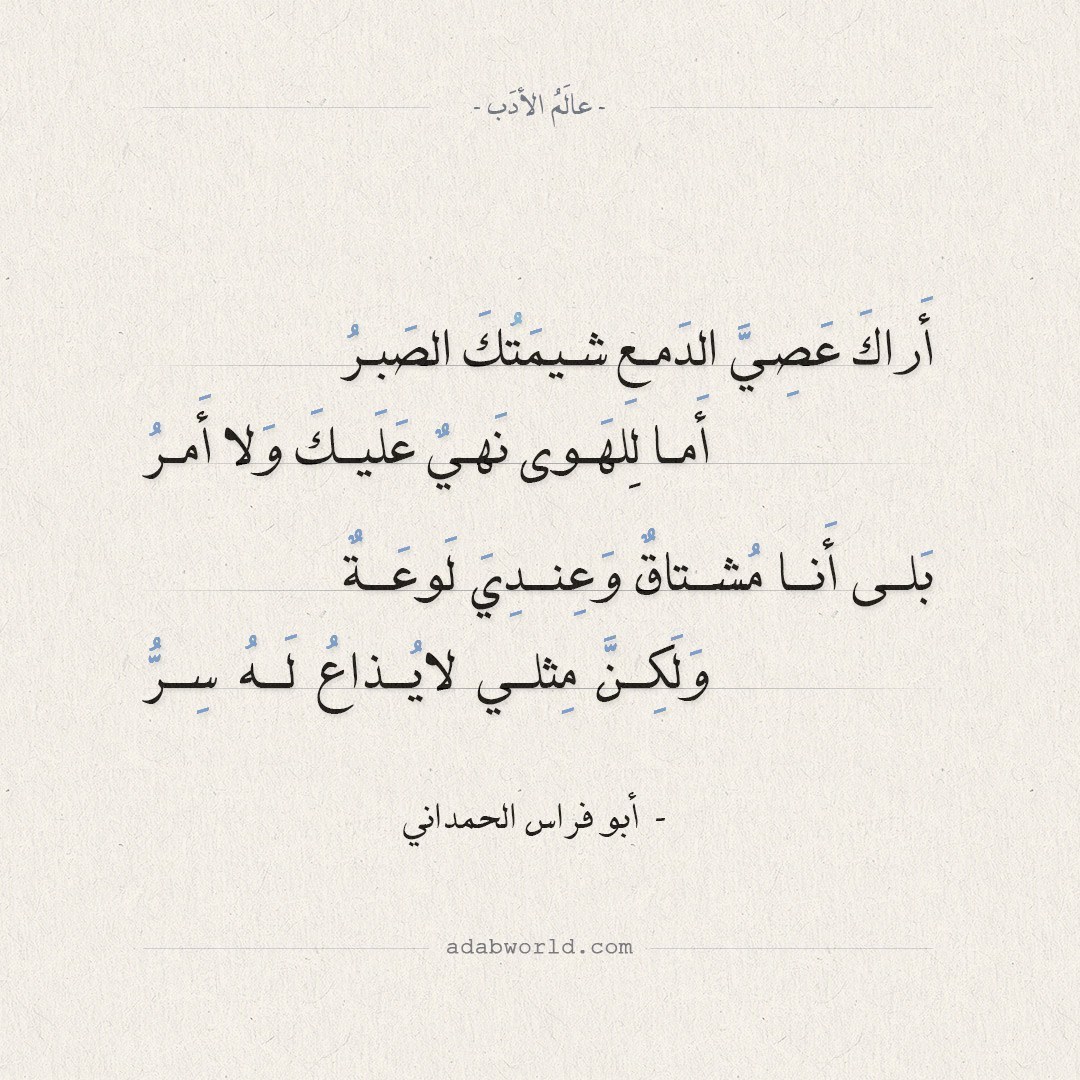 - عالَمُ الأدَب -
أَراكَ عَصِيَّ الدَمعِ شيمَتُكَ الصَبرُ
أَما لِلهَوى نَهيٌ عَلَيكَ وَلا أَمرُ
بَلى أَنا مُشتاقٌ وَعِندِيَ لَوعَةٌ
وَلَكِنَّ مِثلي لايُذاعُ لَهُ سِرُّ
- أبو فراس الحمداني
adabworld.com